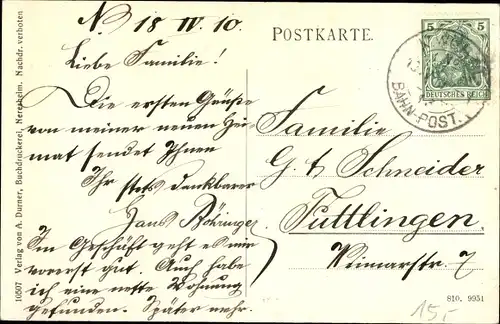 N. 18 IV. 10.
Liebe Familie!
Die ersten Grüsse
von meiner neuen Hei
mat sendet Ihnen
Ihr stets dankbarer
Hans Böhringer
Im Geschäft geht es mir
vorerst gut. Auch habe
ich eine nette Wohnung
gefunden. Später mehr.
POSTKARTE.
5 5
DEUTSCHES REICH
BAHN-POST.
Familie
G. t. Schneider
Tuttlingen
Weimarstr. 7
810. 9951
15,-
10507 Verlag von A. Durner, Buchdruckerei, Neresheim. Nachdr. verboten